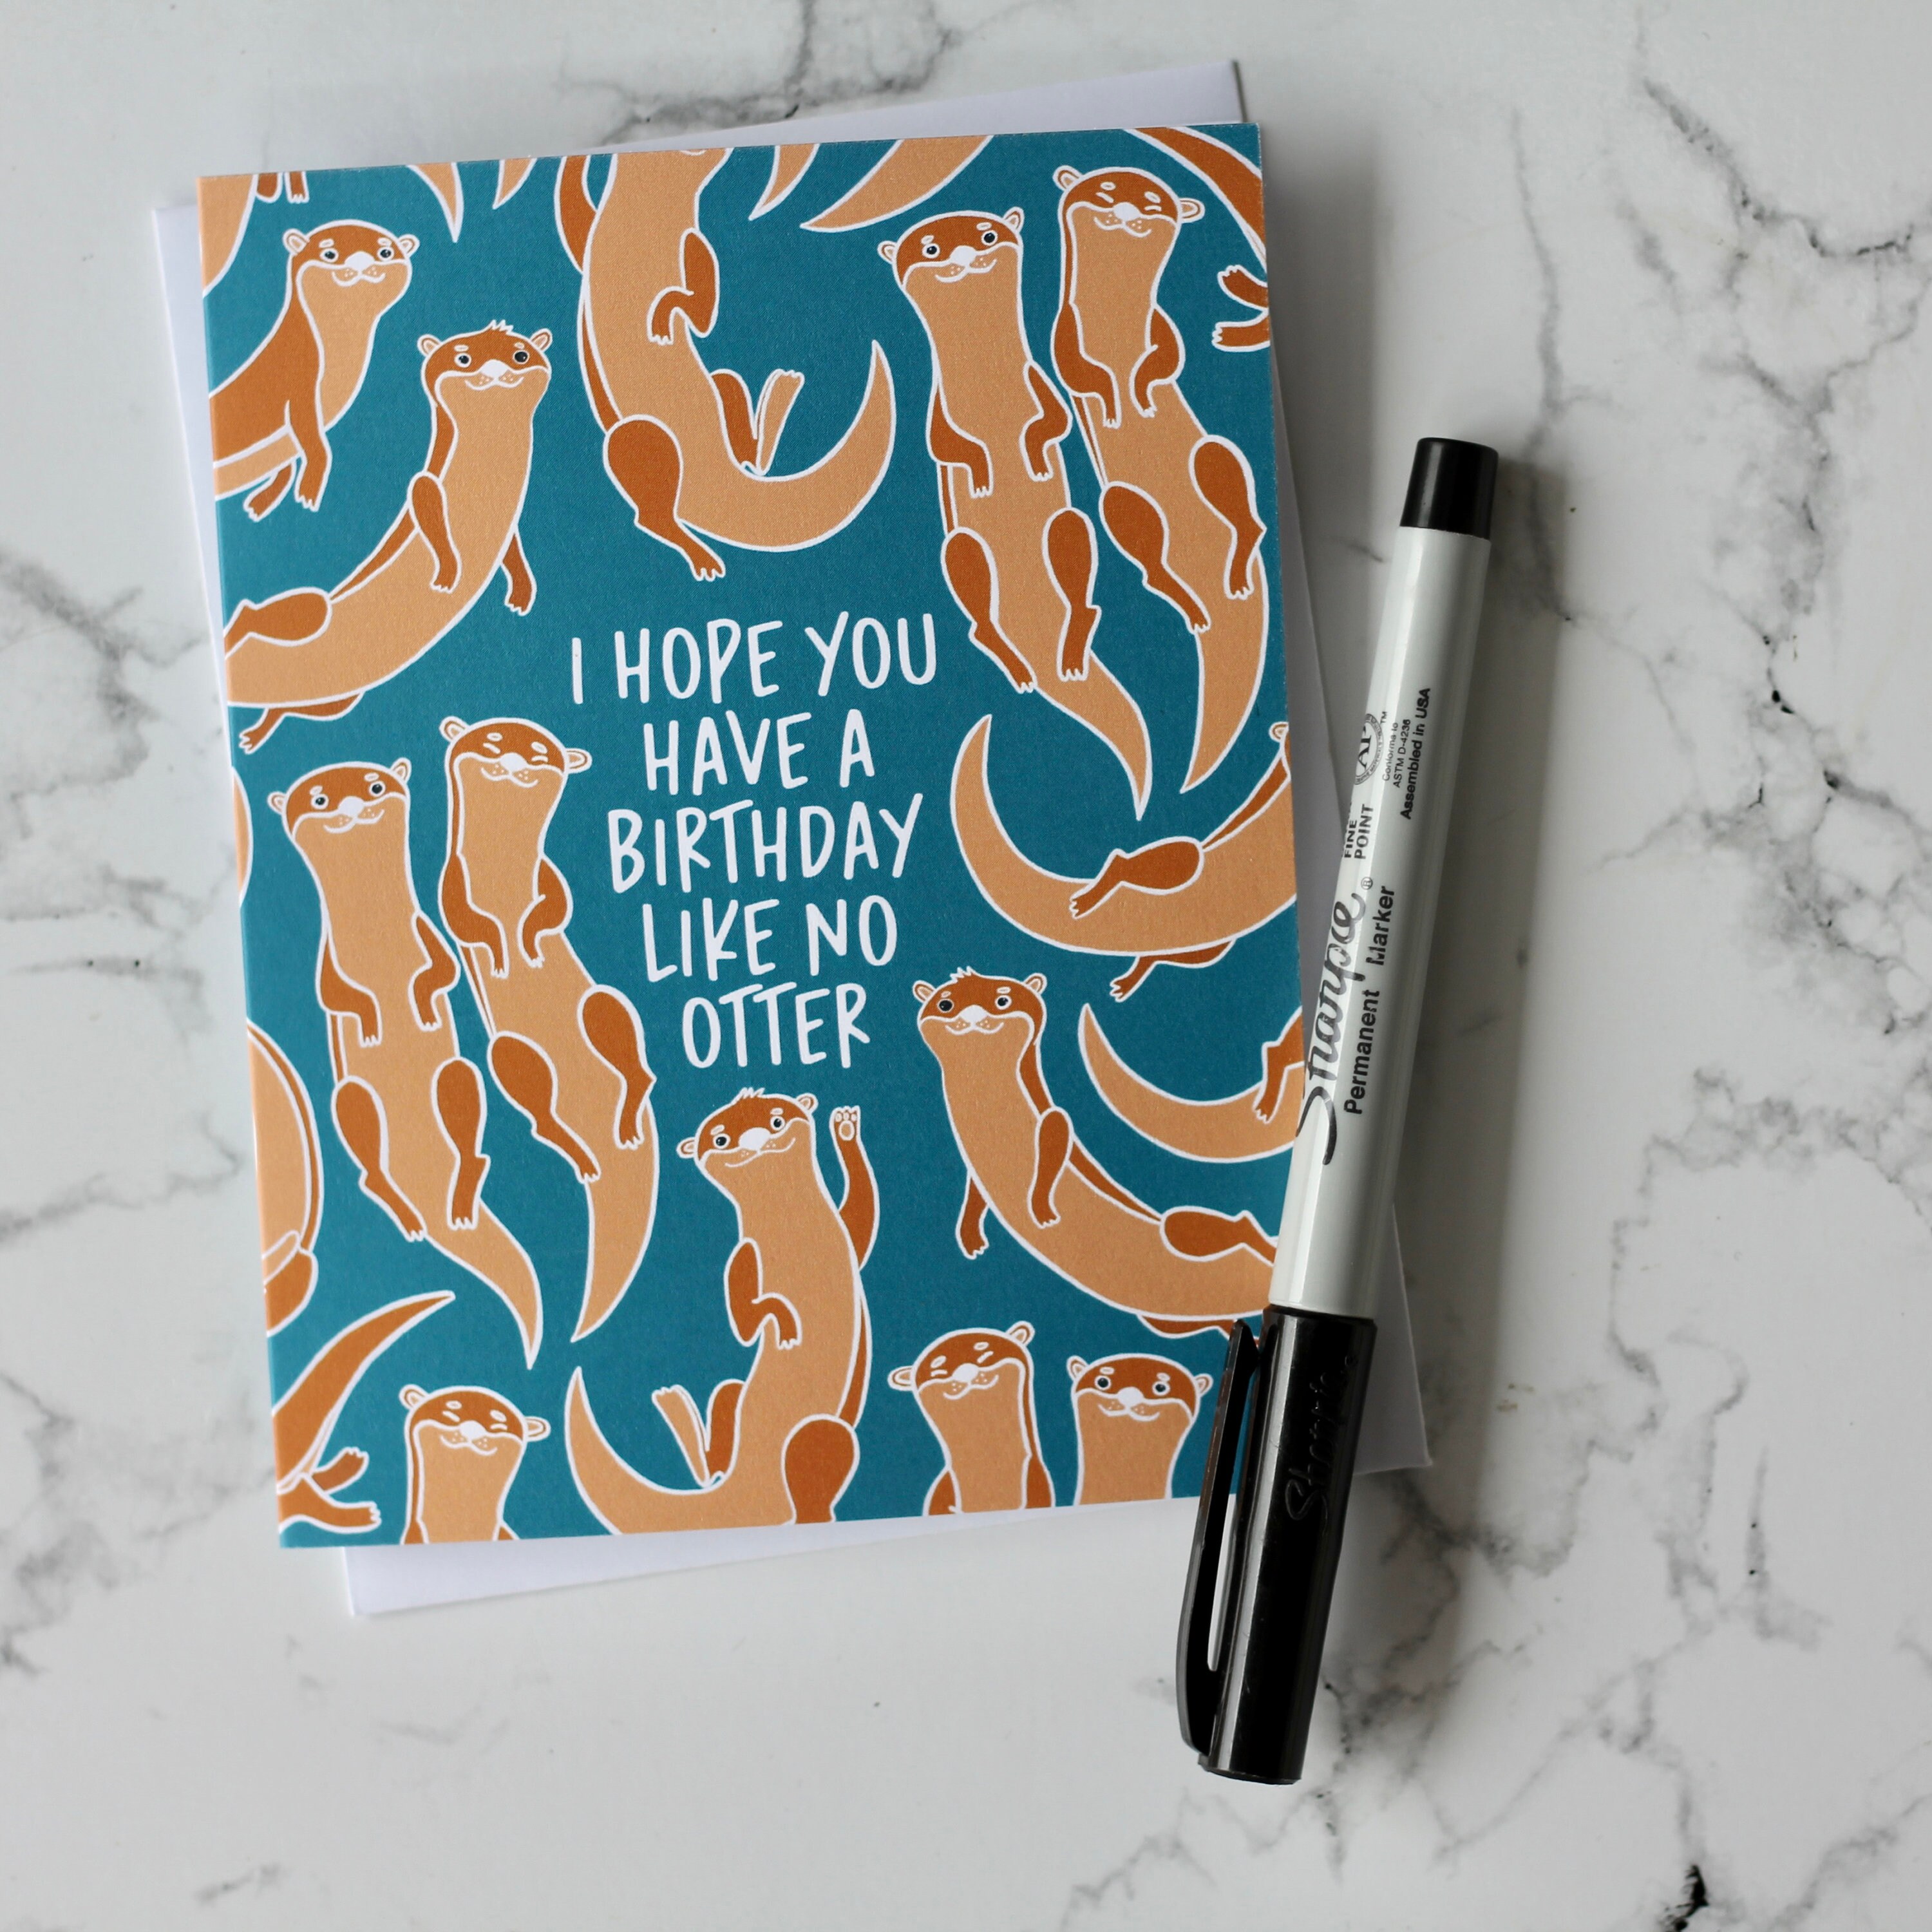 I HOPE YOU
HAVE A
BIRTHDAY
LIKE NO
OTTER
Sharpie®
Permanent Marker
FINE
POINT
AP™
Conforms to
ASTM D-4236
Assembled in USA
Sharpie